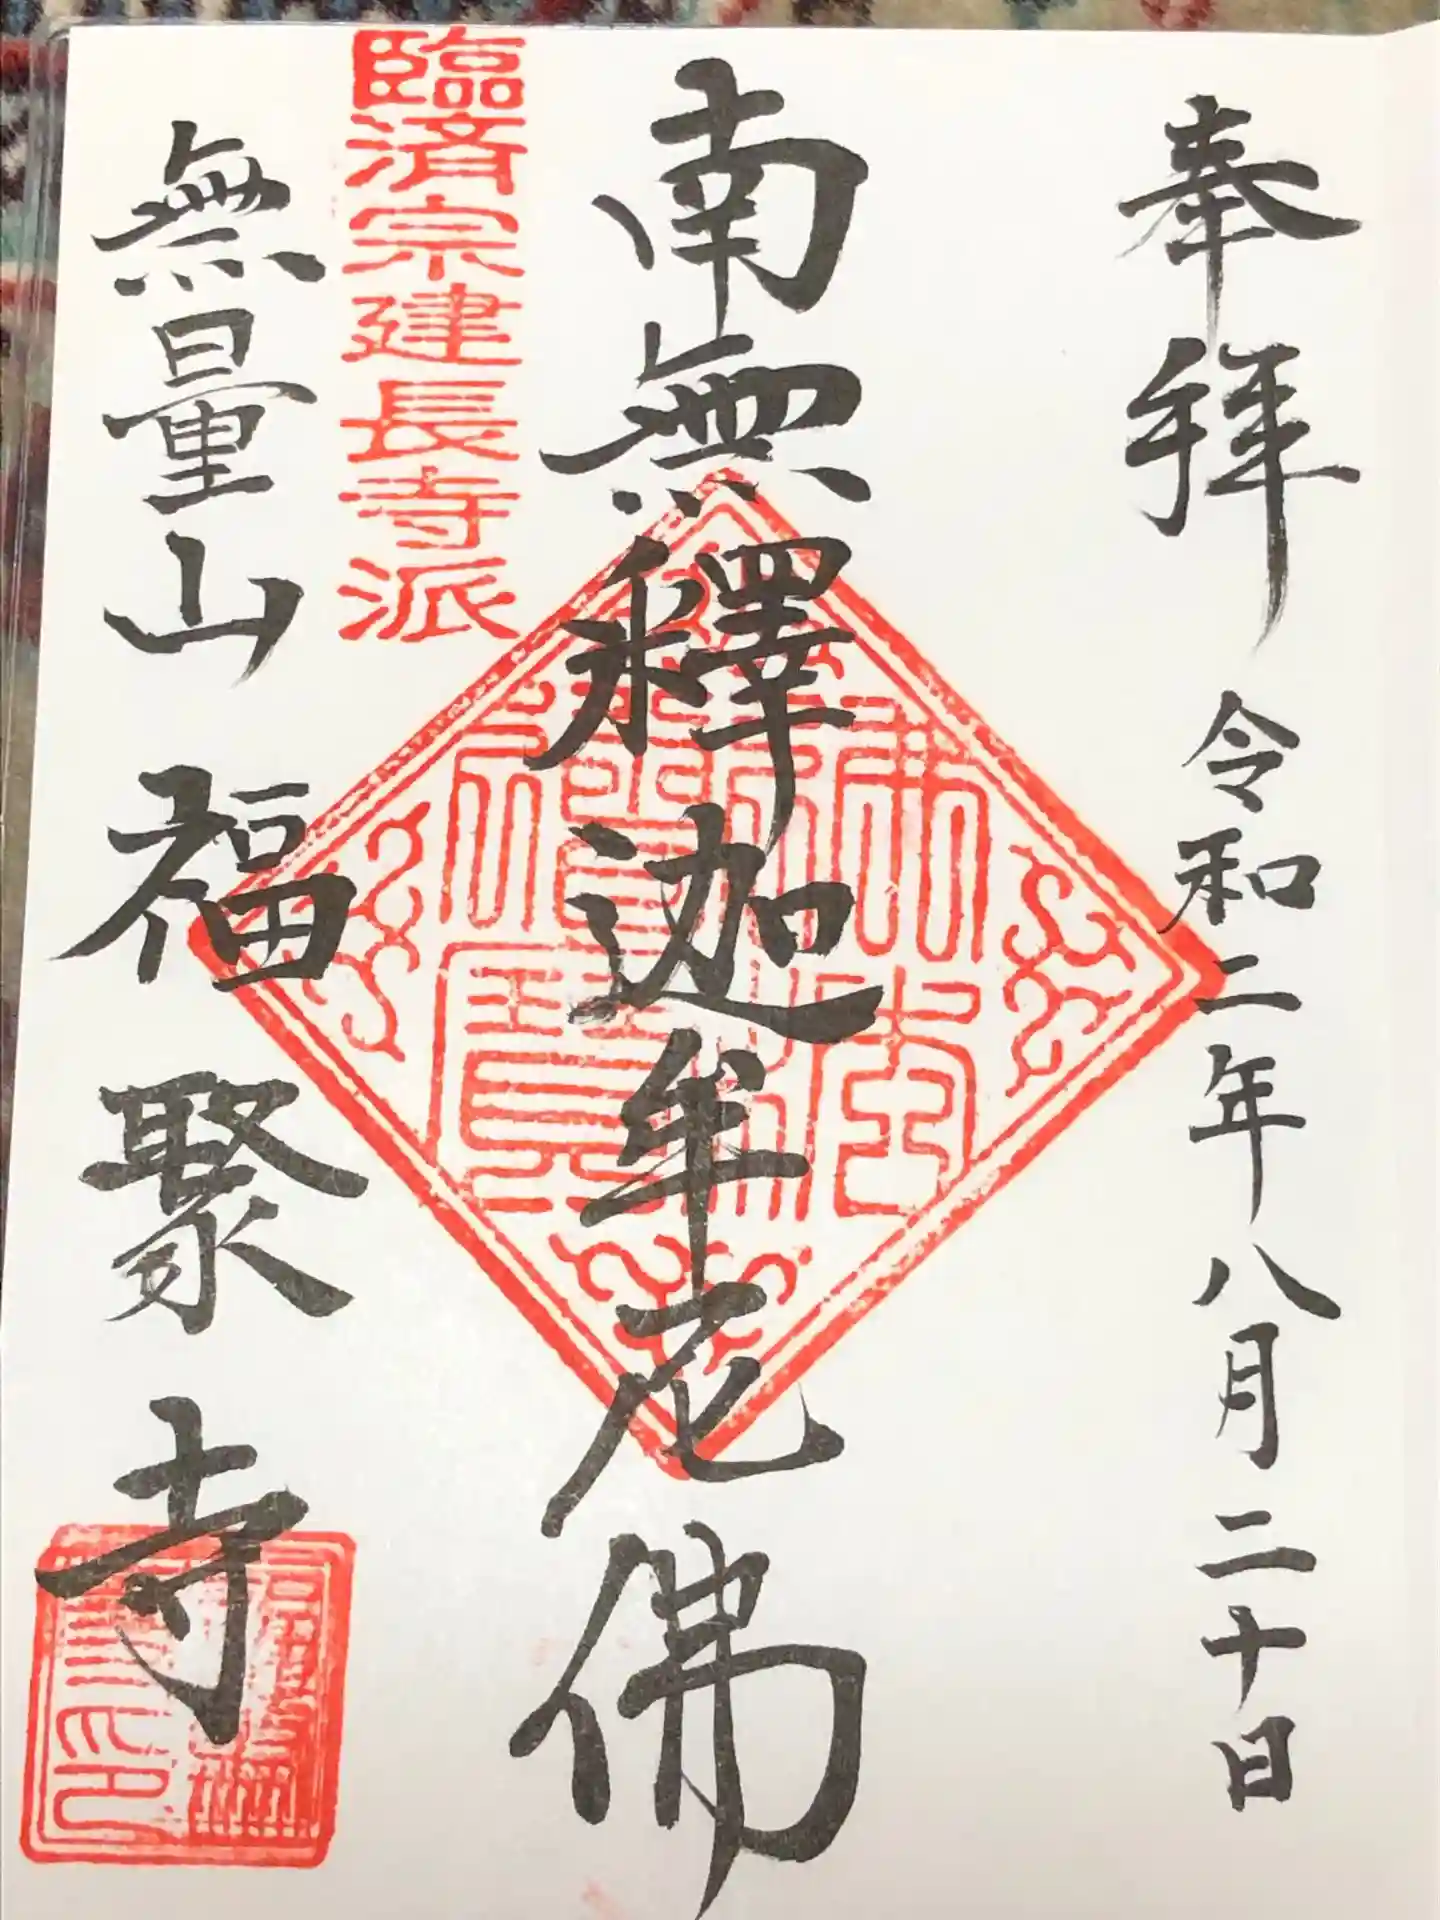 奉拝 令和二年八月二十日
南無釋迦牟尼佛
臨済宗建長寺派
無量山 福聚寺
佛法僧寶